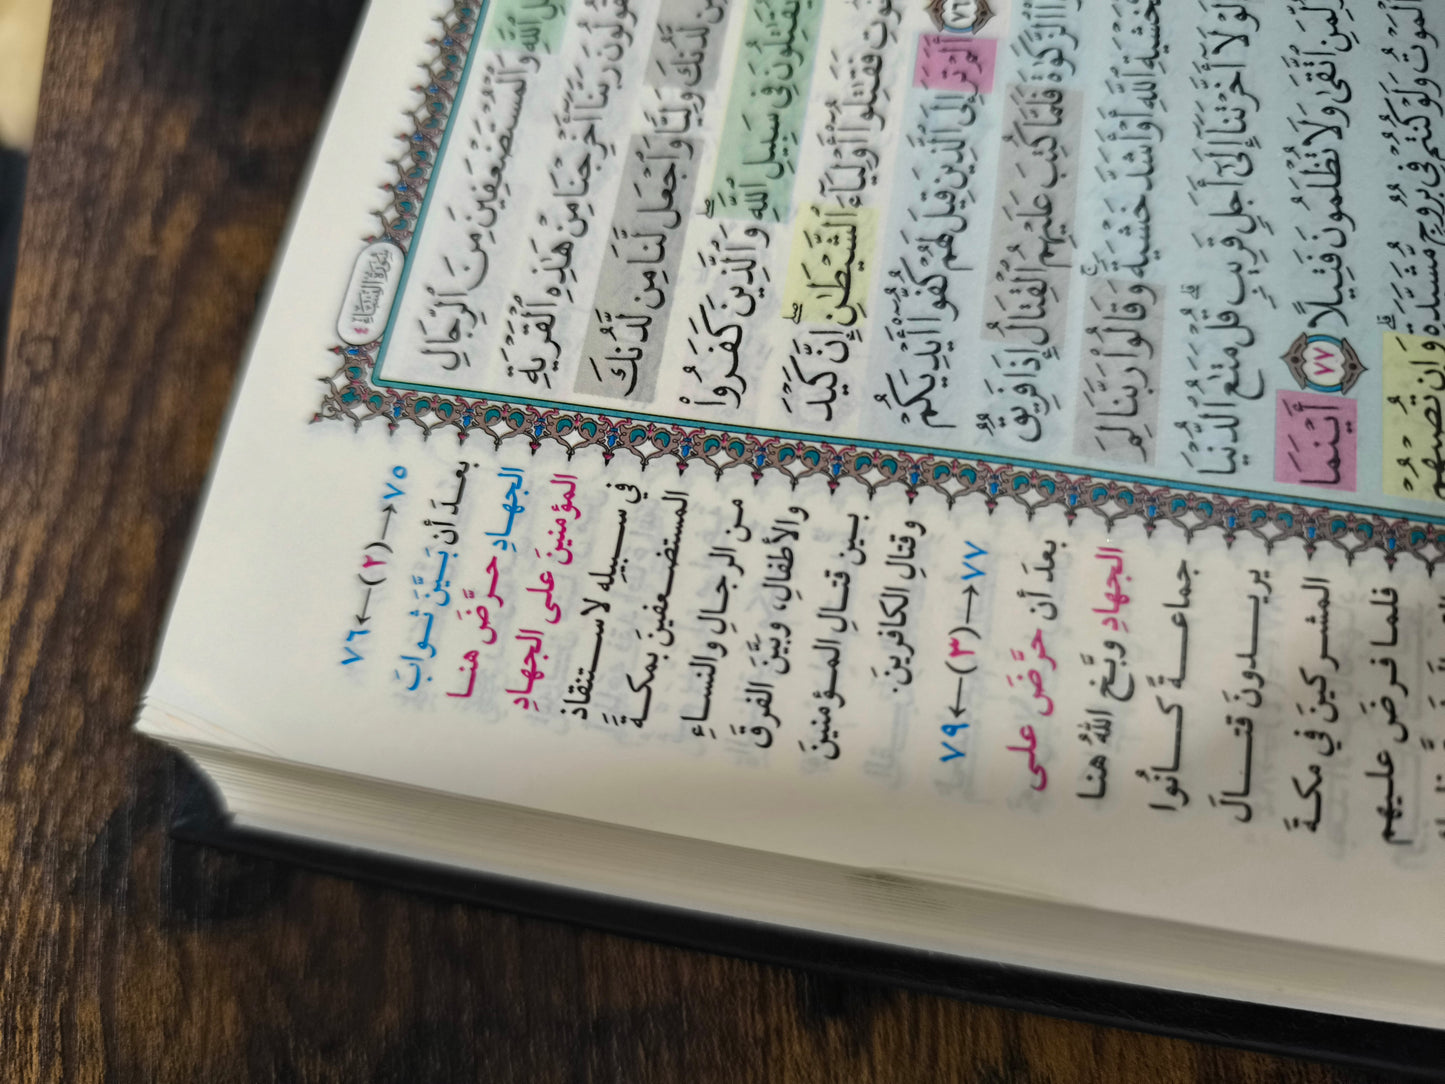 سُورَةُ النِّسَاءِ ٤
ٱللَّهِ وَٱلْمُسْتَضْعَفِينَ مِنَ ٱلرِّجَالِ
يَقُولُونَ رَبَّنَآ أَخْرِجْنَا مِنْ هَٰذِهِ ٱلْقَرْيَةِ
لَّدُنكَ وَلِيًّا وَٱجْعَل لَّنَا مِن لَّدُنكَ
يُقَٰتِلُونَ فِى سَبِيلِ ٱللَّهِ وَٱلَّذِينَ كَفَرُوا۟
فَقَٰتِلُوٓا۟ أَوْلِيَآءَ ٱلشَّيْطَٰنِ إِنَّ كَيْدَ
٧٦ أَلَمْ تَرَ إِلَى ٱلَّذِينَ قِيلَ لَهُمْ كُفُّوٓا۟ أَيْدِيَكُمْ
ٱلزَّكَوٰةَ فَلَمَّا كُتِبَ عَلَيْهِمُ ٱلْقِتَالُ إِذَا فَرِيقٌ
كَخَشْيَةِ ٱللَّهِ أَوْ أَشَدَّ خَشْيَةً وَقَالُوا۟ رَبَّنَا لِمَ
لَوْلَآ أَخَّرْتَنَآ إِلَىٰٓ أَجَلٍ قَرِيبٍ قُلْ مَتَٰعُ ٱلدُّنْيَا
لِّمَنِ ٱتَّقَىٰ وَلَا تُظْلَمُونَ فَتِيلًا ٧٧ أَيْنَمَا
ٱلْمَوْتُ وَلَوْ كُنتُمْ فِى بُرُوجٍ مُّشَيَّدَةٍ وَإِن تُصِبْهُمْ
٧٥→(٢)←٧٦
بعدَ أن بَيَّنَ ثوابَ
الجهادِ حرَّضَ هنا
المؤمنينَ على الجهادِ
في سبيلِه لاستنقاذِ
المستضعفينَ بمكةَ
من الرجالِ والنساءِ
والأطفالِ، وبَيَّنَ الفرقَ
بين قتالِ المؤمنينَ
وقتالِ الكافرينَ.
٧٧→(٣)←٧٩
بعدَ أن حرَّضَ على
الجهادِ وبَّخَ اللهُ هنا
جماعةً كانُوا
يريدونَ قتالَ
المشركينَ في مكةَ
فلما فرضَ عليهم